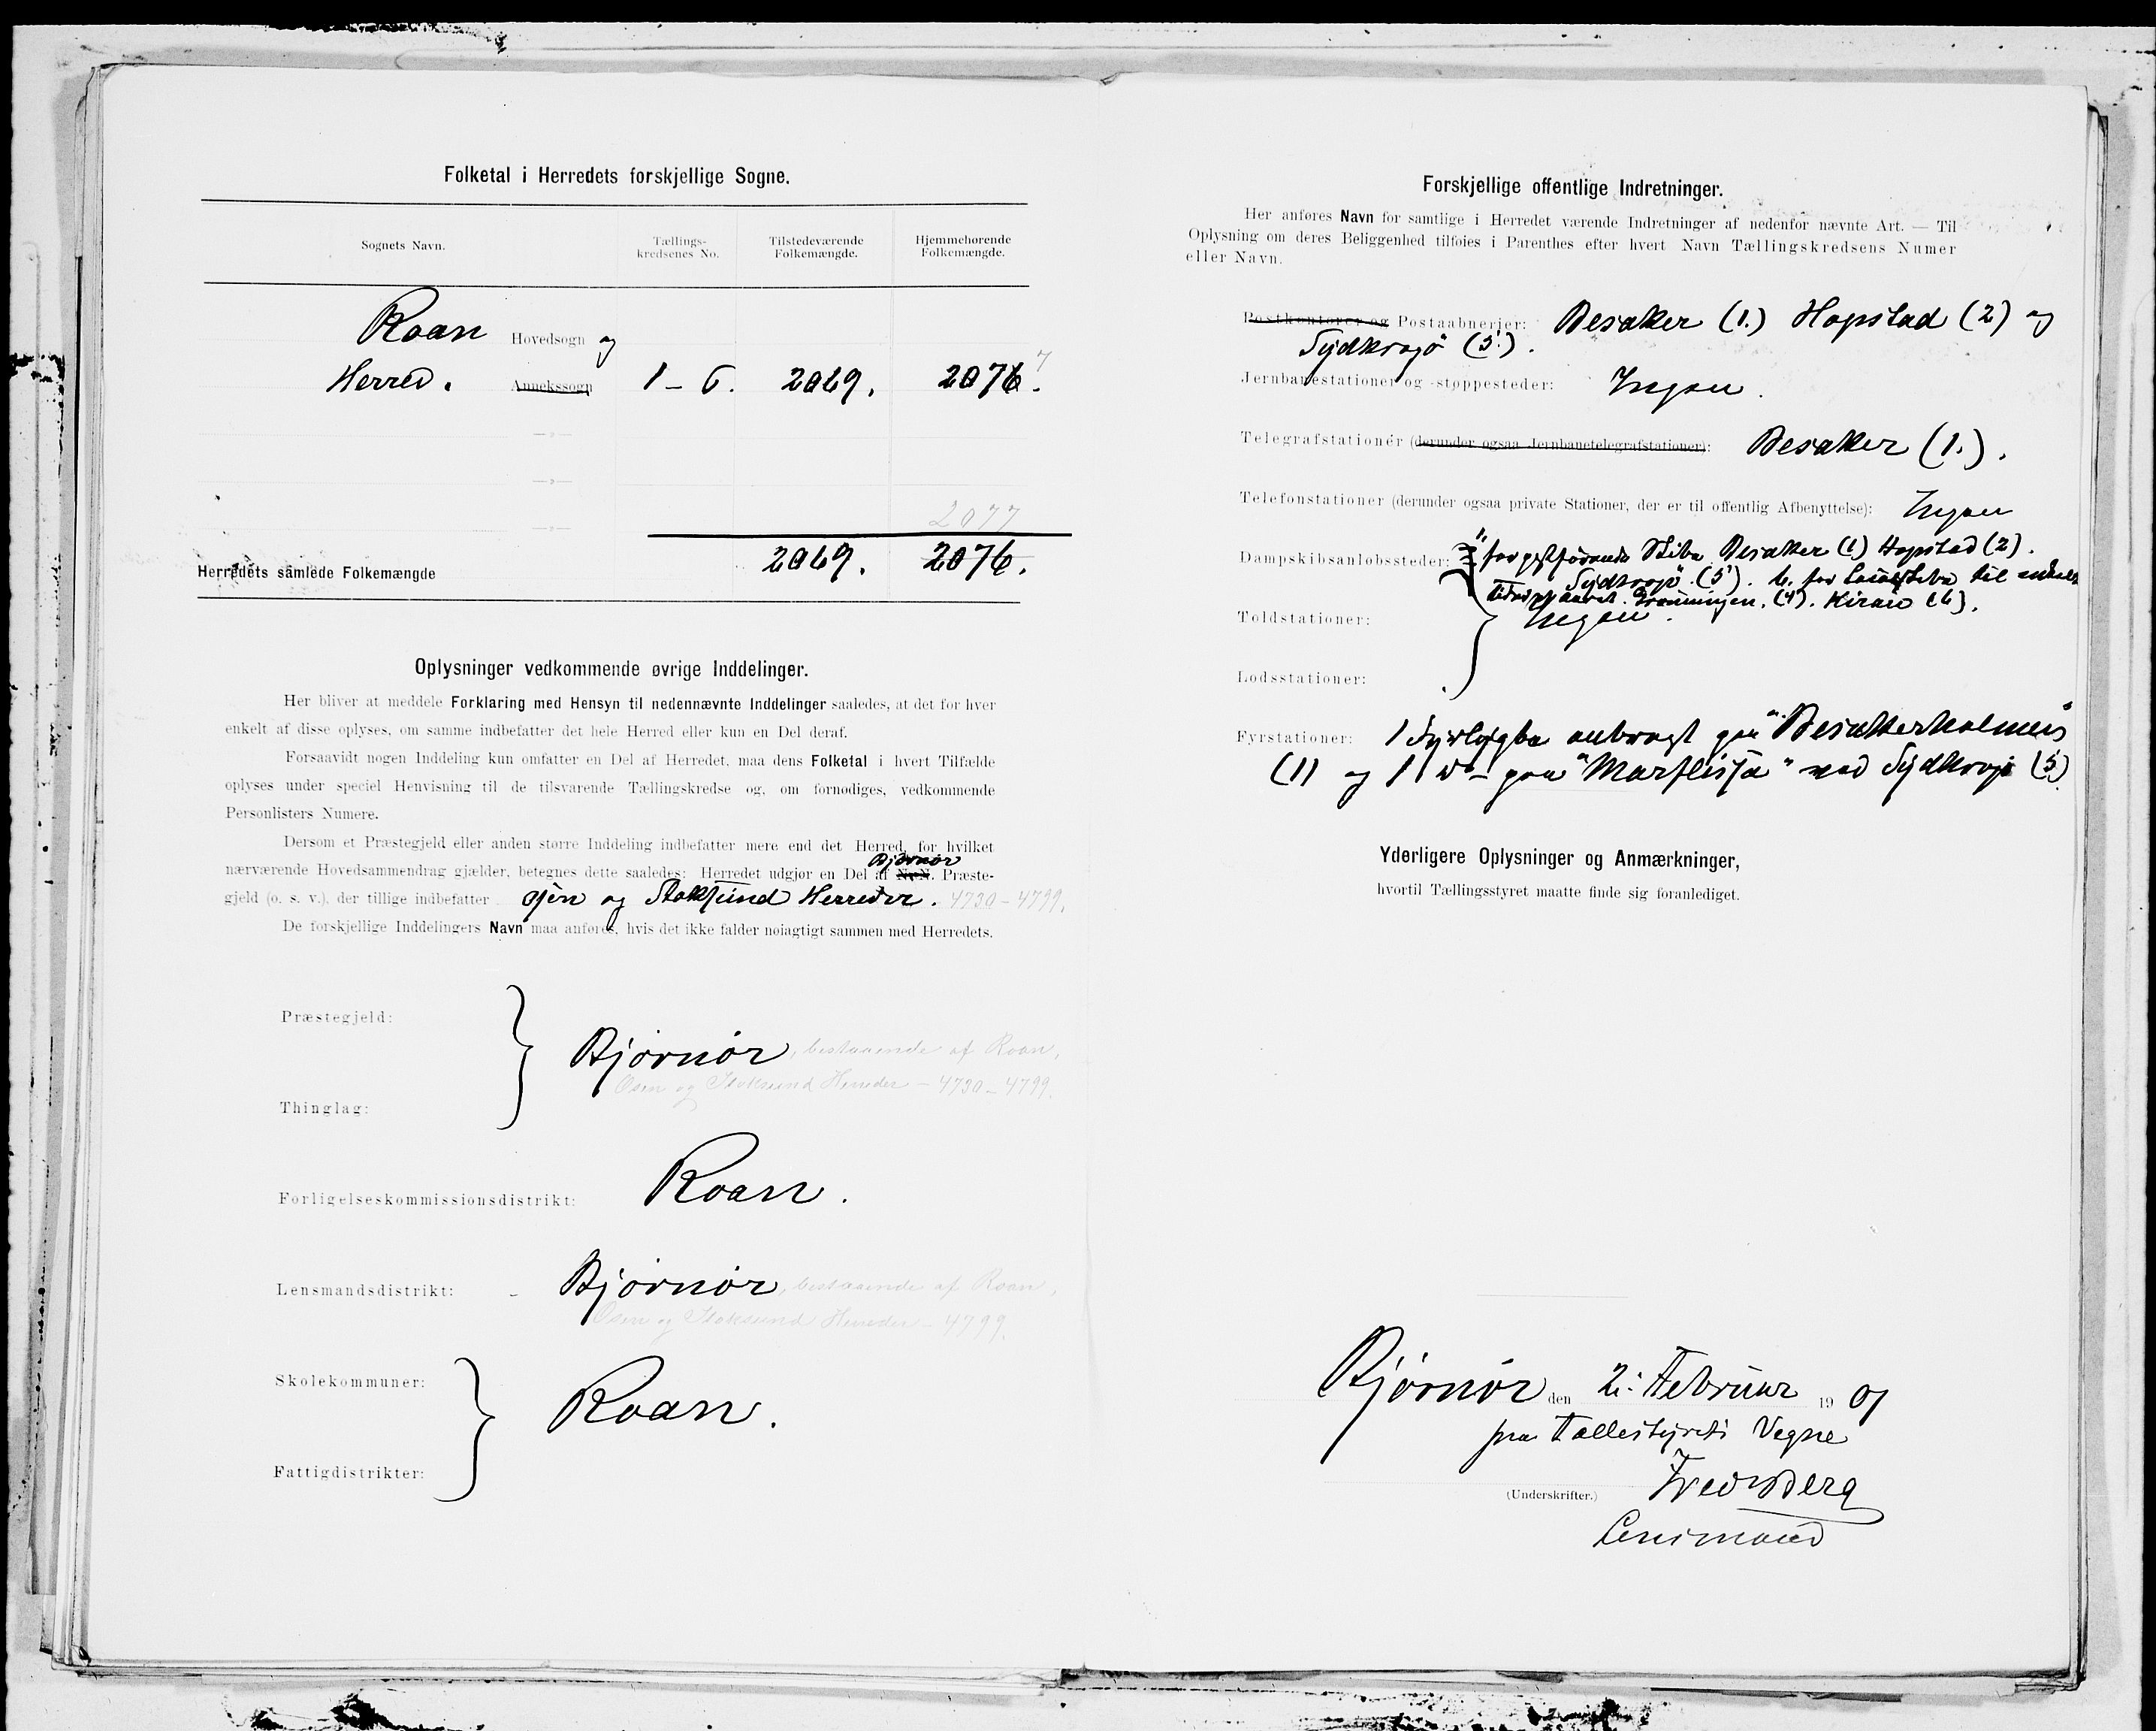 Folketal i Herredets forskjellige Sogne.
Sognets Navn. Tællings-kredsenes No. Tilstedeværende Folkemængde. Hjemmehørende Folkemængde.
Roan Hovedsogn og
Herred. Annekssogn 1 - 6. 2069. 2076. 7
—»—
—»—
—»— 2077
Herredets samlede Folkemængde 2069. 2076.
Oplysninger vedkommende øvrige Inddelinger.
Her bliver at meddele Forklaring med Hensyn til nedennævnte Inddelinger saaledes, at det for hver
enkelt af disse oplyses, om samme indbefatter det hele Herred eller kun en Del deraf.
Forsaavidt nogen Inddeling kun omfatter en Del af Herredet, maa dens Folketal i hvert Tilfælde
oplyses under speciel Henvisning til de tilsvarende Tællingskredse og, om fornødiges, vedkommende
Personlisters Numere.
Dersom et Præstegjeld eller anden større Inddeling indbefatter mere end det Herred, for hvilket
Bjørnør
nærværende Hovedsammendrag gjælder, betegnes dette saaledes: Herredet udgjør en Del af N. N. Præste-
gjeld (o. s. v.), der tillige indbefatter Osen og Stoksund Herreder. 4730 - 4799.
De forskjellige Inddelingers Navn maa anføres, hvis det ikke falder nøiagtigt sammen med Herredets.
Præstegjeld:
Bjørnør, bestaaende af Roan,
Osen og Stoksund Herreder - 4730 - 4799.
Thinglag:
Forligelseskommissionsdistrikt: Roan.
Lensmandsdistrikt: Bjørnør, bestaaende af Roan,
Osen og Stoksund Herreder - 4799.
Skolekommuner:
Roan.
Fattigdistrikter:
Forskjellige offentlige Indretninger.
Her anføres Navn for samtlige i Herredet værende Indretninger af nedenfor nævnte Art. — Til
Oplysning om deres Beliggenhed tilføies i Parenthes efter hvert Navn Tællingskredsens Numer
eller Navn.
Postkontorer og Postaabnerier: Besaker (1.) Hopstad (2) og
Sydkrogø (5).
Jernbanestationer og -støppesteder: Ingen.
Telegrafstationer (derunder ogsaa Jernbanetelegrafstationer): Besaker (1.).
Telefonstationer (derunder ogsaa private Stationer, der er til offentlig Afbenyttelse): Ingen
Dampskibsanløbssteder: for postførende Skibe Besaker (1) Hopstad (2).
Sydkrogø (5). b. for Lokalskibe til enkelte
Tider af Aaret. (4). Kiran (6).
Toldstationer: Ingen.
Lodsstationer:
Fyrstationer: 1 Fyrlygte anbragt paa "Besakerholmens"
(1) og 1 do - paa "Marfleisja" ved Sydkrogø (5).
Yderligere Oplysninger og Anmærkninger,
hvortil Tællingsstyret maatte finde sig foranlediget.
Bjørnør den 2: Februar 1901
paa Tællestyrets Vegne
(Underskrifter.) Fred. Berg
Lensmand